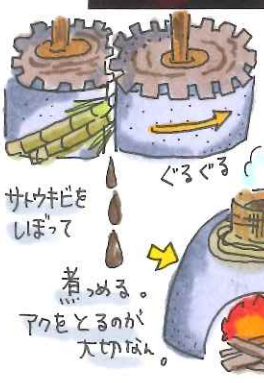 ぐるぐる
サトウキビを
しぼって
煮つめる。
アクをとるのが
大切なん。